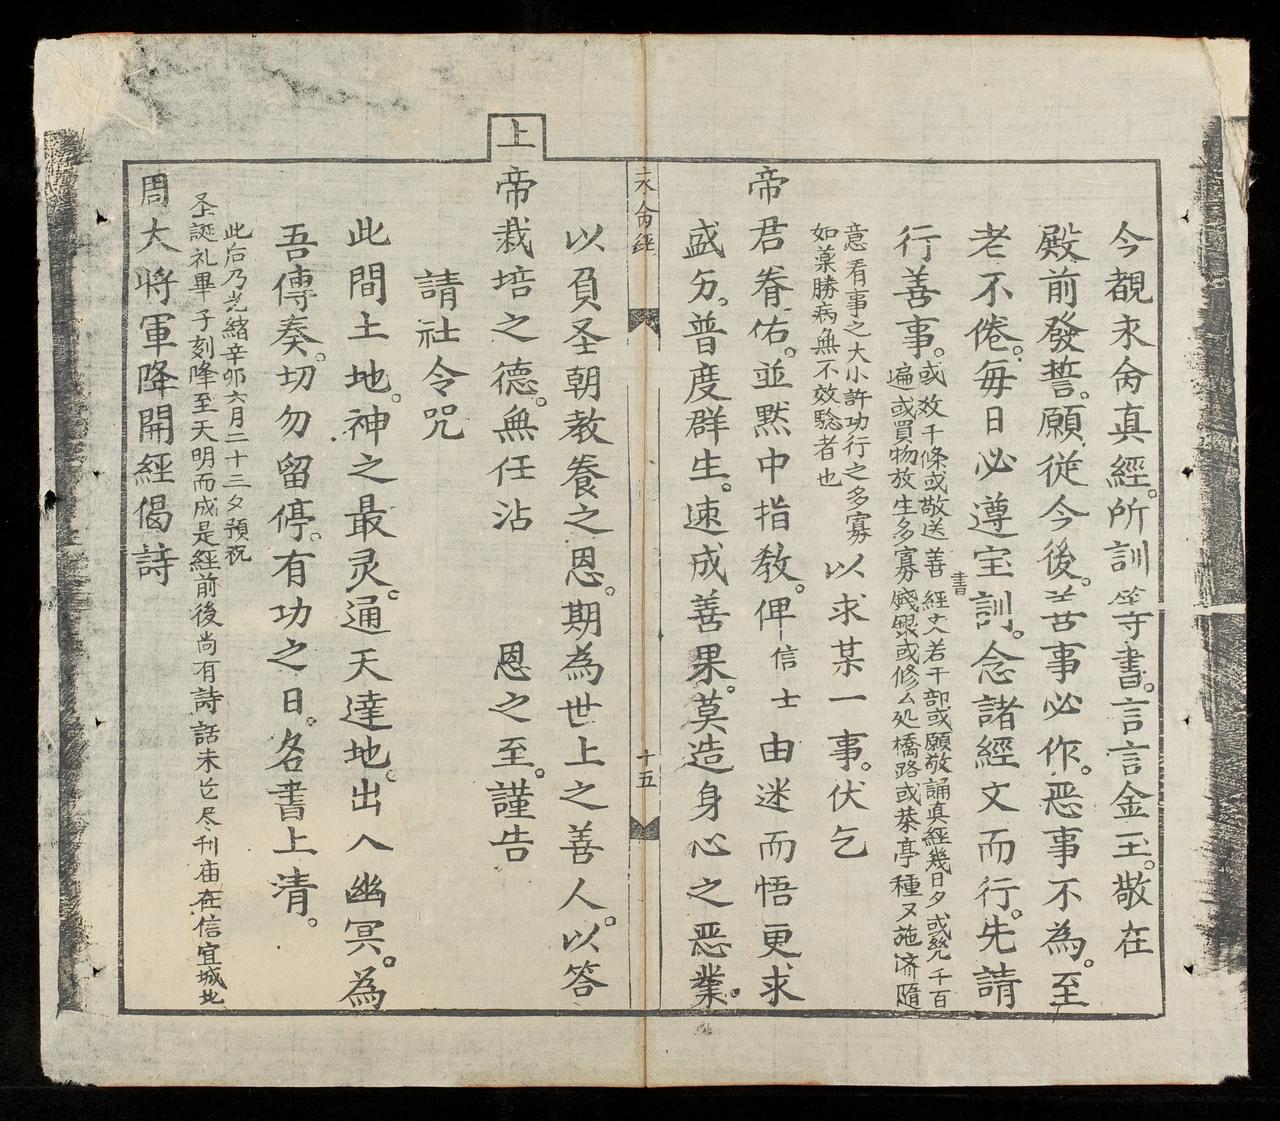 今覩求禽真經。所訓等書。言言金玉。敬在
殿前發誓。願從今後。善事必作。恶事不為。至
老不倦。毎日必遵宝訓。念諸經文而行。先請
行善事。
或效千條或敬送善書經文若干部或願敬誦真經幾日夕或凴千百
遍或買物放生多寡錢銀或修么处橋路或茶亭種又施济隨
意看事之大小許功行之多寡
如藥勝病無不效驗者也
以求某一事。伏乞
帝君眷佑。並默中指教。俾信士由迷而悟更求
盛夯。普度群生。速成善果。莫造身心之恶業。
求禽經
十五
以負圣朝教養之恩。期為世上之善人。以答
上帝栽培之德。無任沾 恩之至。謹告
請社令咒
此間土地。神之最灵。通天達地。出入幽冥。為
吾傳奏。切勿留停。有功之日。名書上清。
此后乃光緒辛卯六月二十三夕預祝
圣誕礼畢子刻降至天明而成是經前後尚有詩話未尽刊庙在信宜城北
周大将軍降開經偈詩